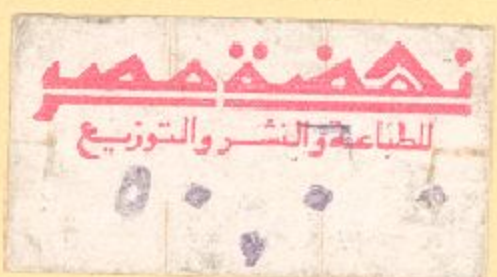 نهضة مصر
للطباعة والنشر والتوزيع